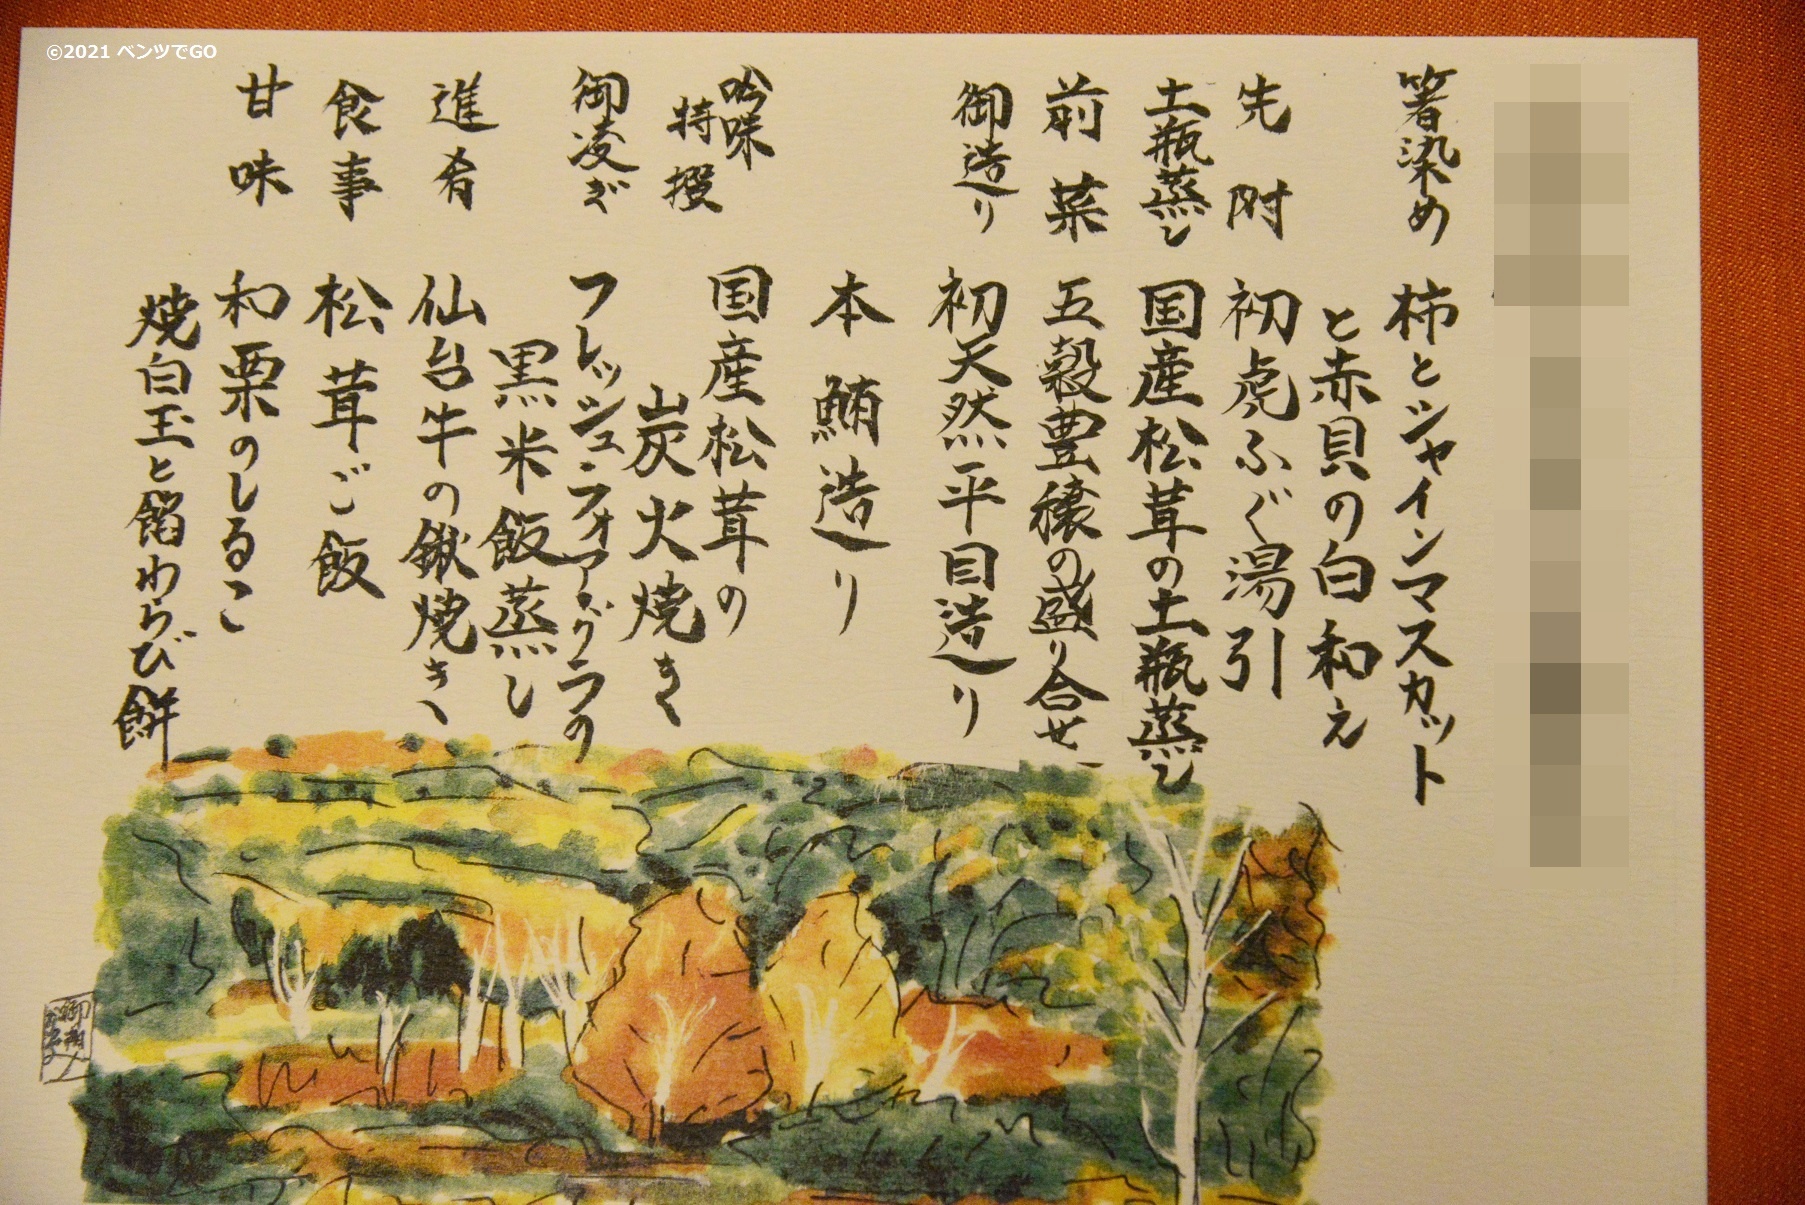 ©2021 ベンツでGO
箸染め 柿とシャインマスカット
と赤貝の白和え
先附 初虎ふぐ湯引
土瓶蒸し 国産松茸の土瓶蒸し
前菜 五穀豊穣の盛り合せ
御造り 初天然平目造り
本鮪造り
吟味
特撰 国産松茸の
炭火焼き
御凌ぎ フレッシュ・フォアグラの
黒米飯蒸し
進肴 仙台牛の鍬焼き
食事 松茸ご飯
甘味 和栗のしるこ
焼白玉と餡わらび餅